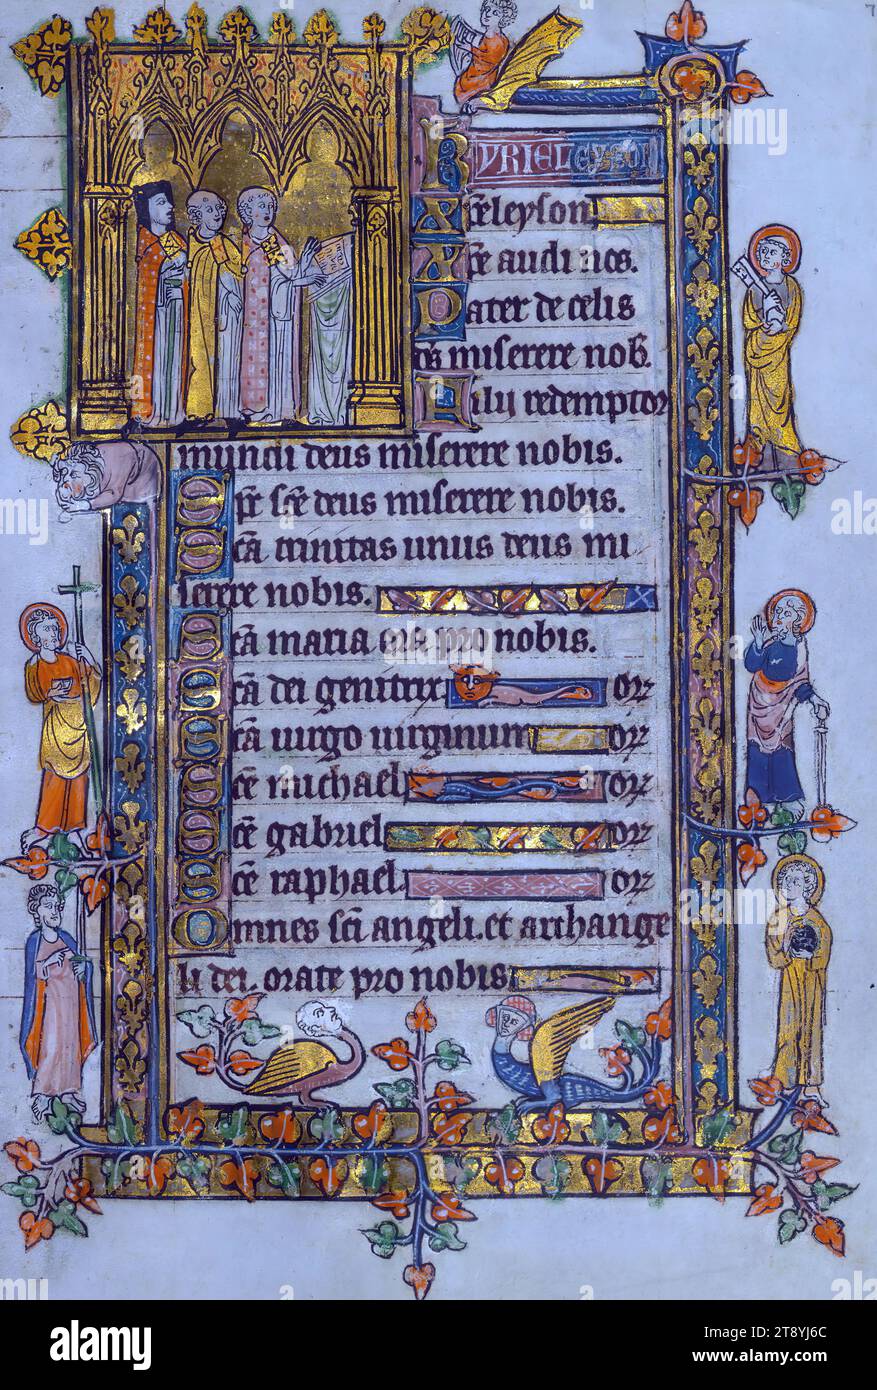 KYRIEL eyson
Xpeleyson
Xpe audi nos.
Pater de celis
ds miserere nob.
Filii redemptor
mundi deus miserere nobis.
Spc sce deus miserere nobis.
Sca trinitas unus deus mi
serere nobis.
Sca maria ora pro nobis.
Sca dei genitrix or
Sca uirgo uirginum or
Sce michael or
Sce gabriel or
Sce raphael. or
Omnes sci angeli. et archange
li dei. orate pro nobis
alamy
Image ID: 2T8YJ6C
www.alamy.com